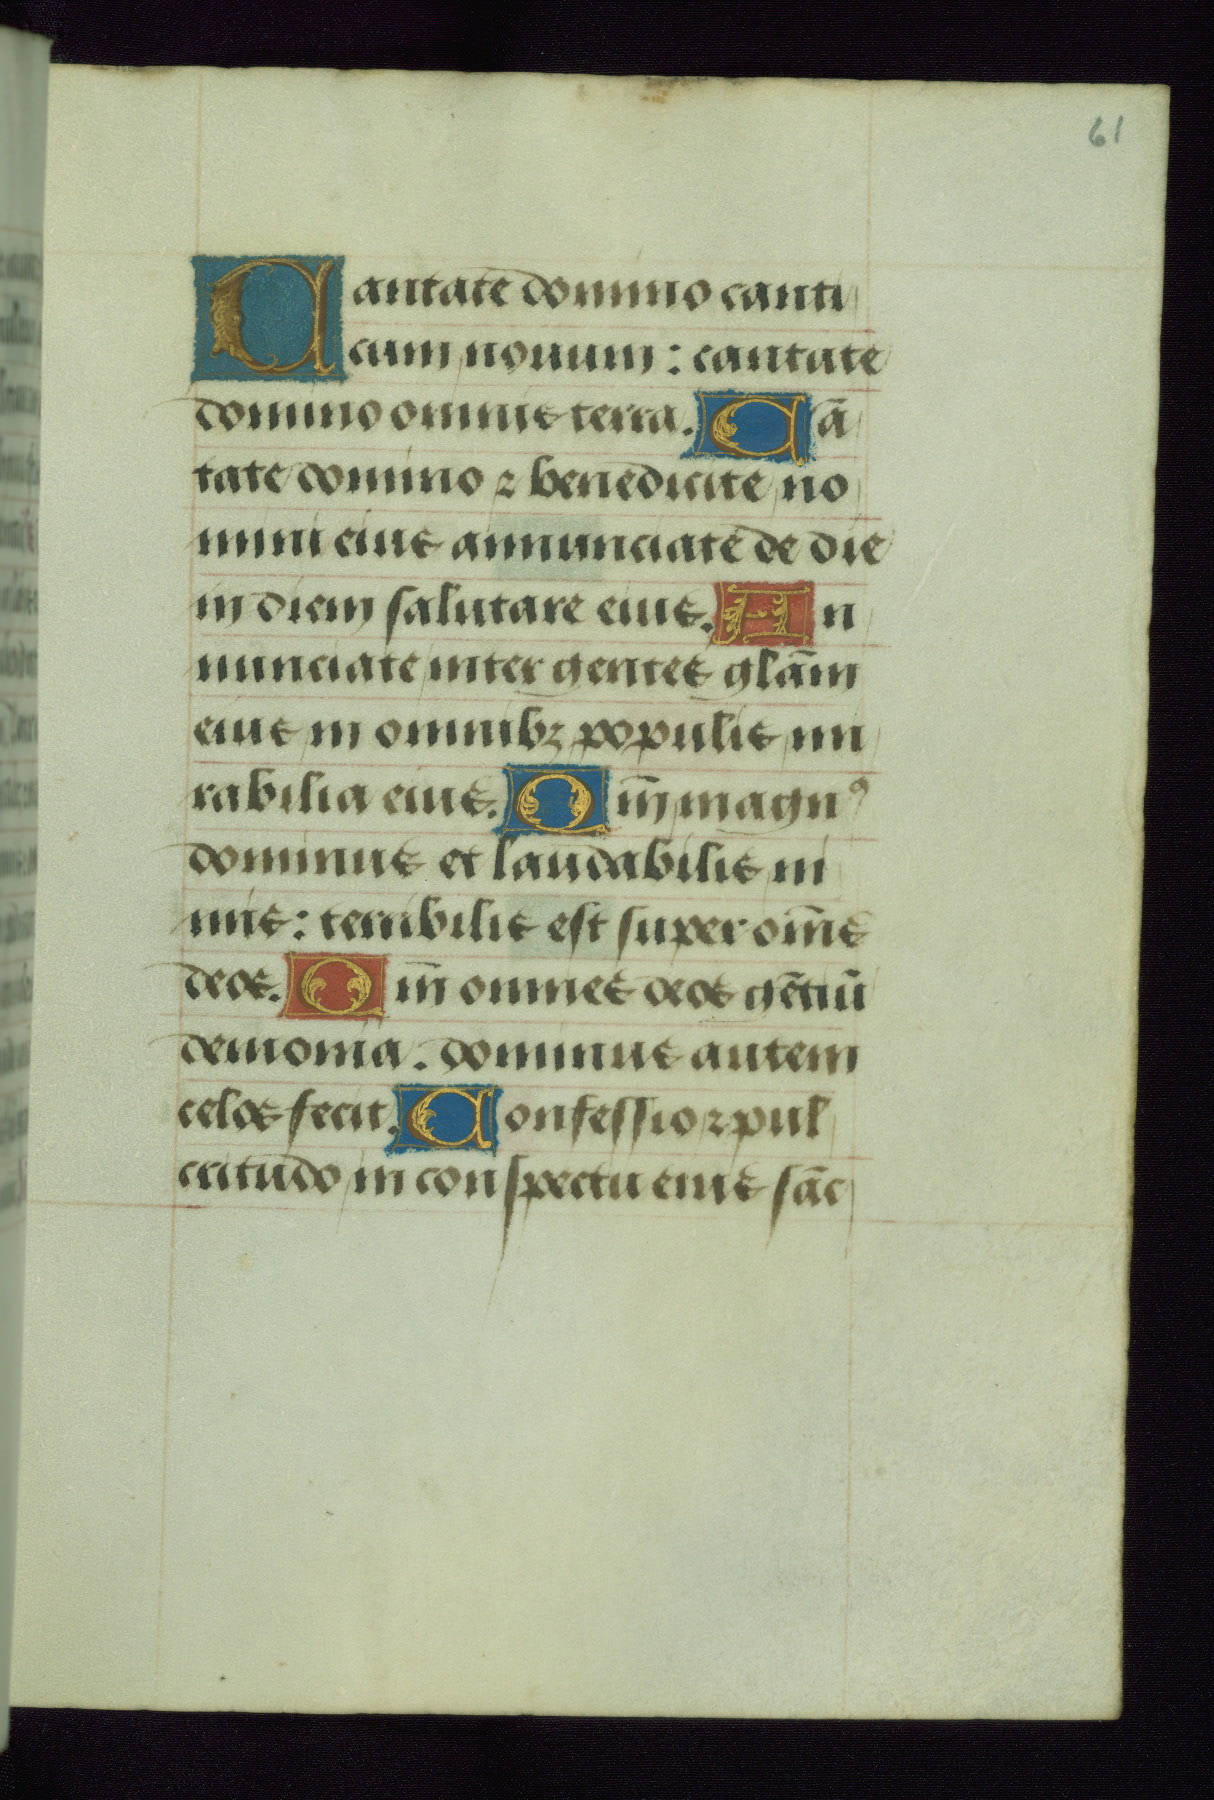 61
Cantate domino canti
cum nouum : cantate
domino omnis terra. Cã
tate domino ⁊ benedicite no
mini eius annunciate de die
in diem salutare eius. An
nunciate inter gentes glãm
eius in omnibꝫ populis mi
rabilia eius. Qm̃ magnꝰ
dominus et laudabilis ni
mis : terribilis est super om̃es
deos. Qm̃ omnes deos gẽtiũ
demonia. dominus autem
celos fecit. Confessio ⁊ pul
critudo in conspectu eius sãc